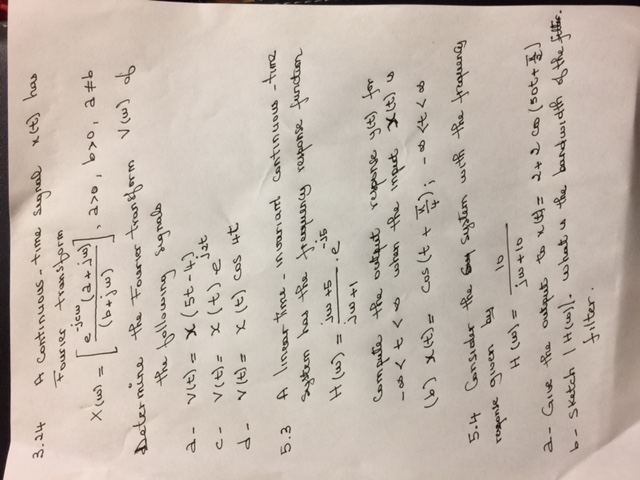 3.24 A continuous-time signal x(t) has
Fourier transform
X(ω) = [ e^-jcω (a+jω) / (b+jω) ], a>0, b>0, a≠b
Determine the Fourier transform V(ω) of
the following signals
a- v(t) = x(5t-4)
c- v(t) = x(t) e^j2t
d- v(t) = x(t) cos 4t
5.3 A linear time-invariant continuous-time
system has the frequency response function
H(ω) = jω+5 / jω+1 . e^-j5
Compute the output response y(t) for
-∞ < t < ∞ when the input x(t) is
(b) x(t) = cos(t + π/4); -∞ < t < ∞
5.4 Consider the system with the frequency
response given by
H(ω) = 10 / jω+10
a- Give the output to x(t) = 2+2 cos (50t + π/2)
b- Sketch |H(ω)|. What is the bandwidth of the filter.
filter.